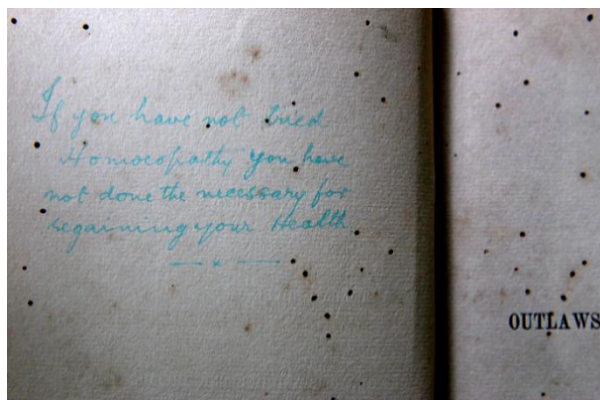 If you have not tried
Homoeopathy you have
not done the necessary for
regaining your Health
OUTLAWS